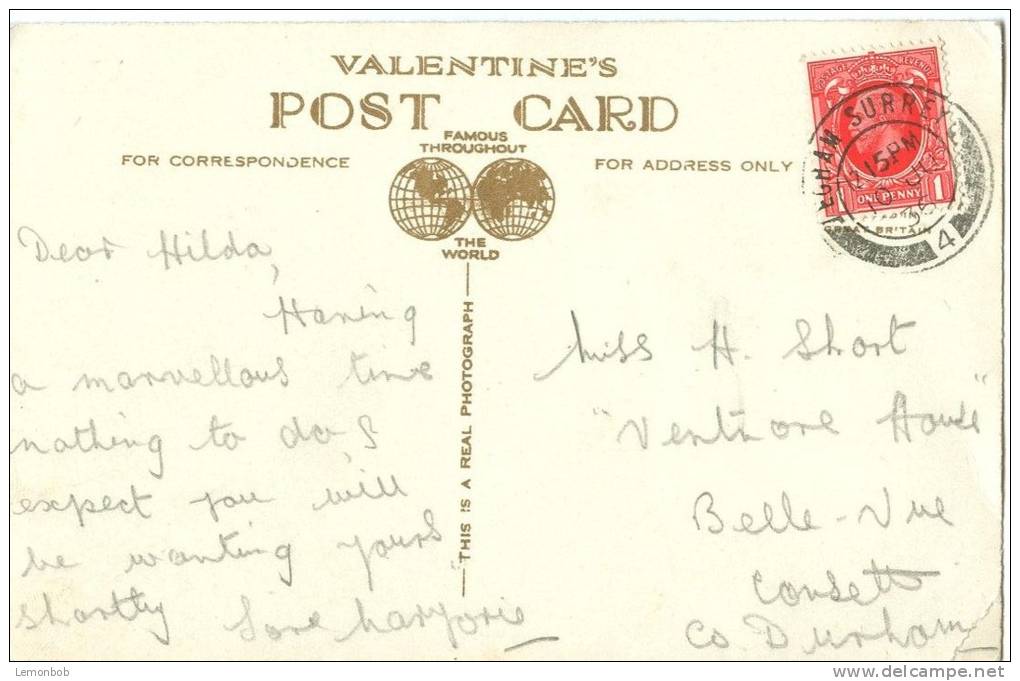 VALENTINE'S
POST CARD
FAMOUS
THROUGHOUT
FOR CORRESPONDENCE
FOR ADDRESS ONLY
THE
WORLD
THIS IS A REAL PHOTOGRAPH
GREAT BRITAIN
POSTAGE REVENUE
1 ONE PENNY 1
EGHAM SURREY
15 PM
10 JU
35
4
Dear Hilda,
Having
a marvellous time
nothing to do, I
expect you will
be wanting yours
shortly Love Marjorie
Miss H. Short
"Ventnore House"
Belle-Vue
Consett
Co Durham
Lemonbob
delcampe.net